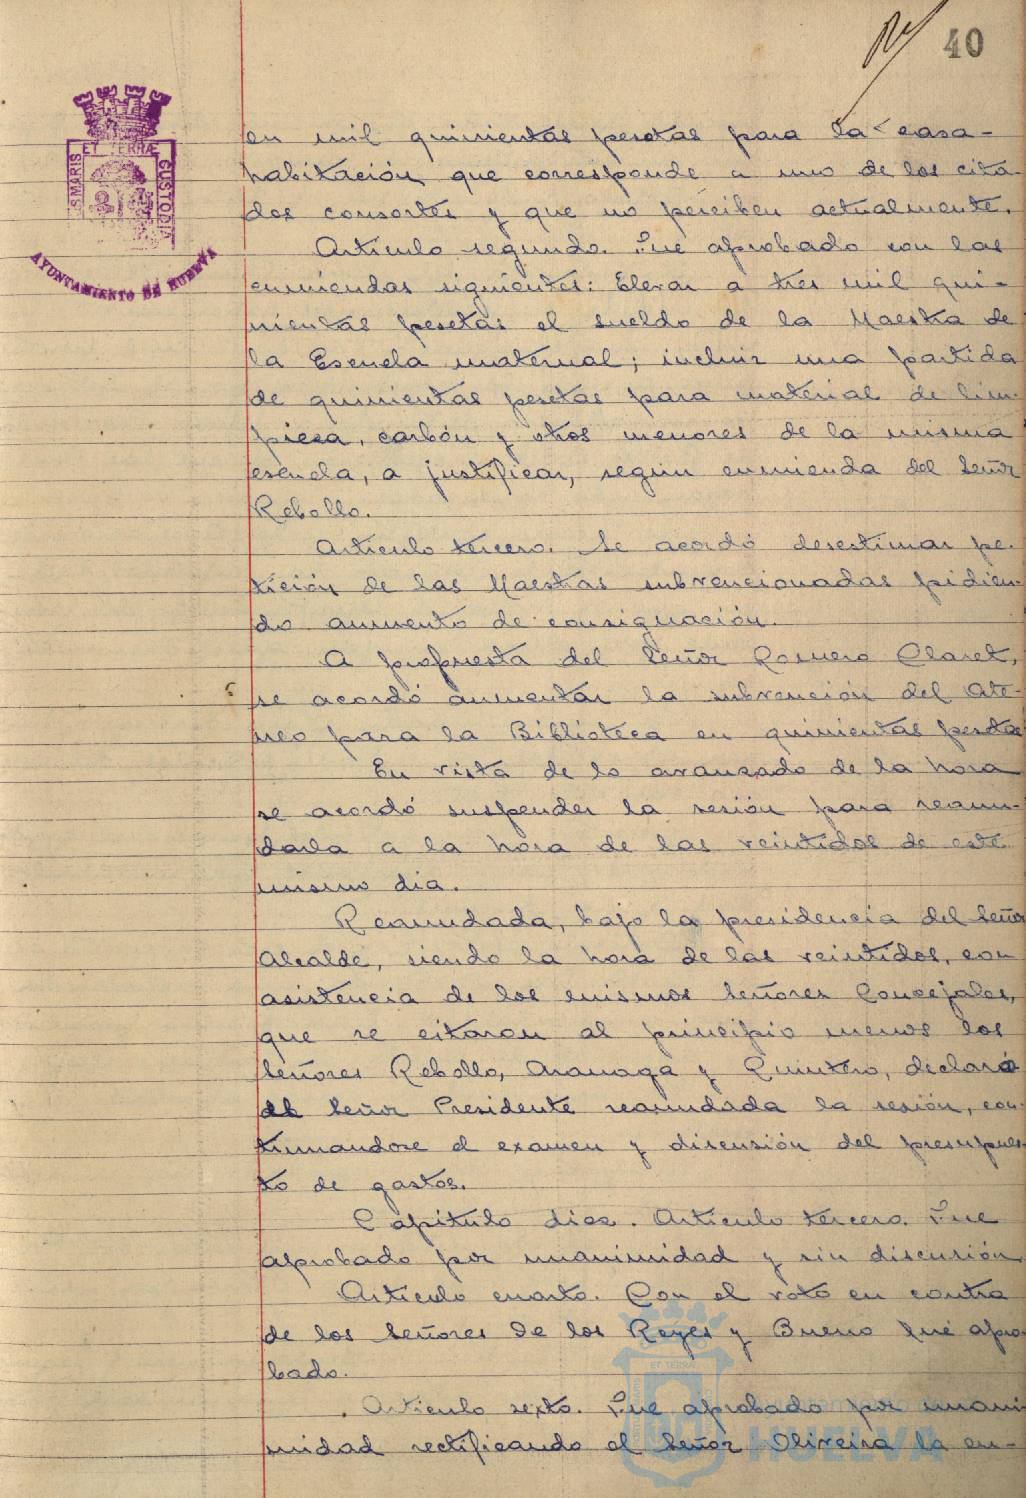 40
en mil quinientas pesetas para la casa-
habitación que corresponde a uno de los cita-
dos consortes y que no perciben actualmente.
Artículo segundo. Fue aprobado con las
enmiendas siguientes: Elevar a tres mil qui-
nientas pesetas el sueldo de la Maestra de
la Escuela maternal; incluir una partida
de quinientas pesetas para material de lim-
pieza, carbón y otros menores de la misma
escuela, a justificar, según enmienda del Señor
Rebollo.
Artículo tercero. Se acordó desestimar pe-
tición de las Maestras subvencionadas pidien-
do aumento de consignación.
A propuesta del Señor Romero Claret,
se acordó aumentar la subvención del Ate-
neo para la Biblioteca en quinientas pesetas
En vista de lo avanzado de la hora
se acordó suspender la sesión para reanu-
darla a la hora de las veintidos de este
mismo dia.
Reanudada, bajo la presidencia del Señor
Alcalde, siendo la hora de las veintidos, con
asistencia de los mismos Señores Concejales,
que se citaron al principio menos los
Señores Rebollo, Aranaga y Quintero, declaró
el Señor Presidente reanudada la sesión, con-
tinuandose el examen y discusión del presupues-
to de gastos.
Capítulo diez. Artículo tercero. Fue
aprobado por unanimidad y sin discusión
Artículo cuarto. Con el voto en contra
de los Señores De los Reyes y Bueno fué apro-
bado.
Artículo sexto. Fue aprobado por unani-
midad rectificando el Señor Oliveira la en-
SMARIS ET TERRÆ CUSTODIA
AYUNTAMIENTO DE HUELVA
ET TERRÆ
HUELVA